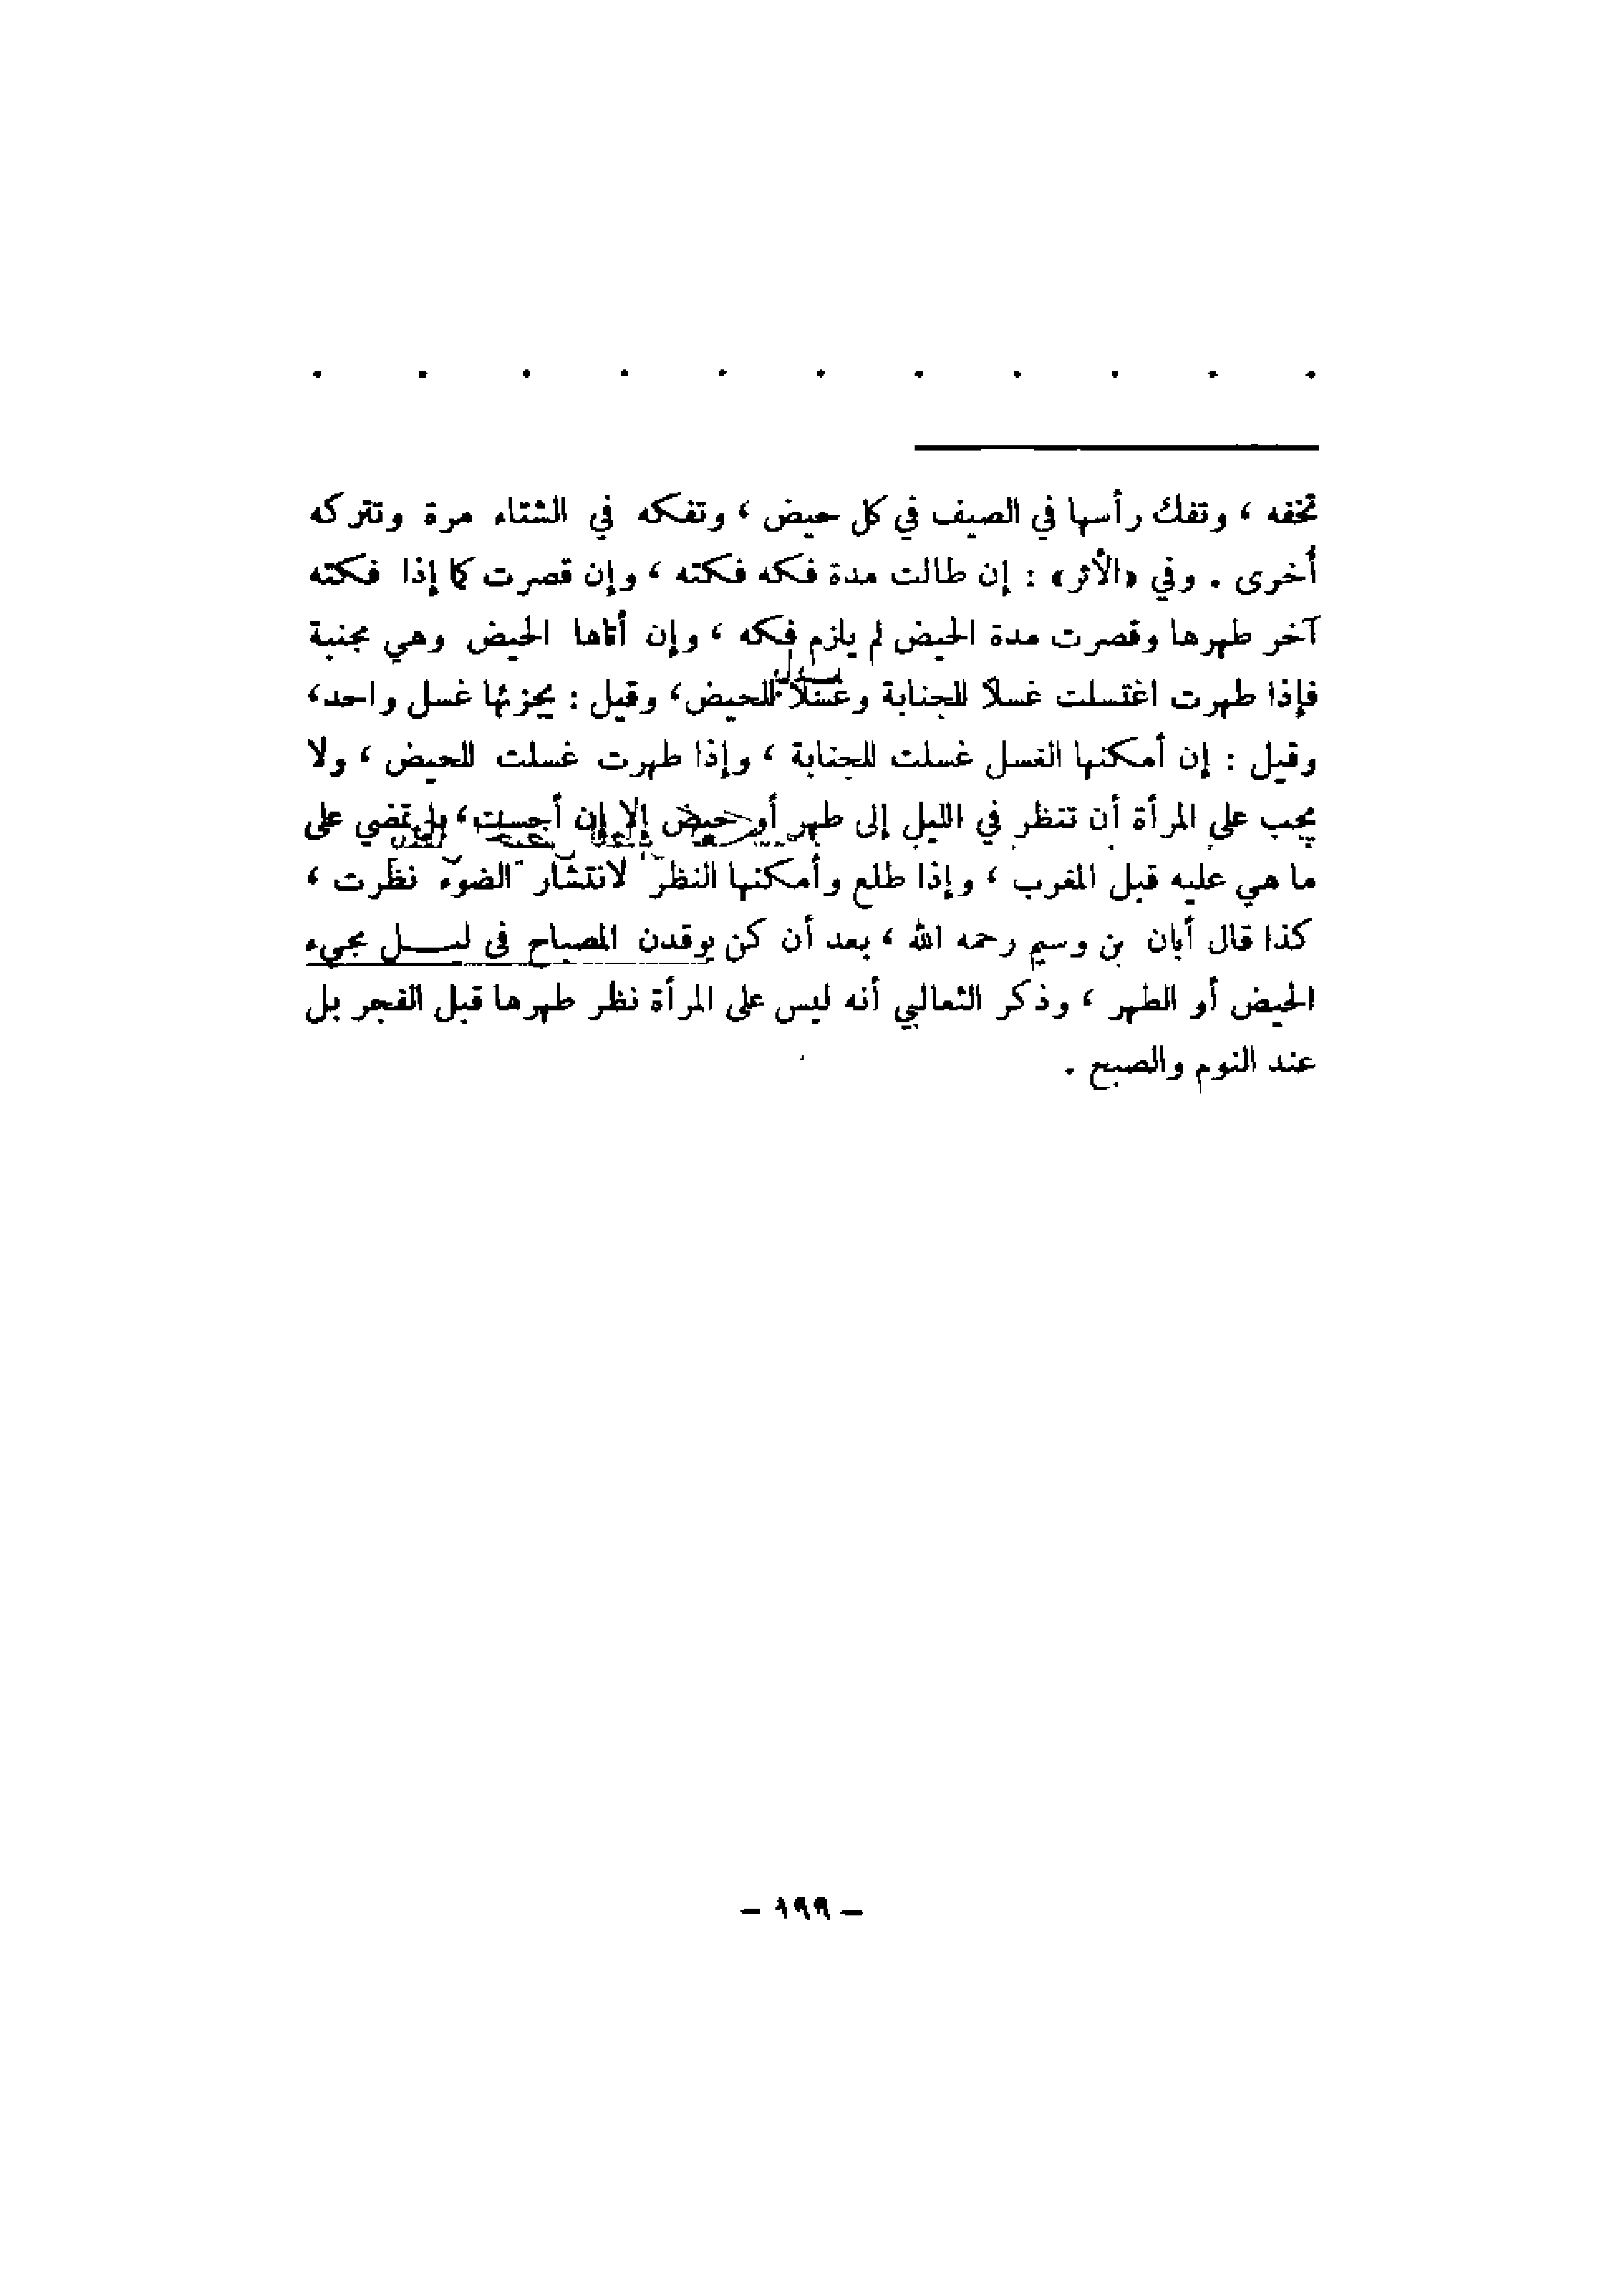 . . . . . . . . . . .
تخفه ، وتفك رأسها في الصيف في كل حيض ، وتفكه في الشتاء مرة وتتركه
أخرى . وفي «الأثر» : إن طالت مدة فكه فكته ، وإن قصرت كما إذا فكته
آخر طهرها وقصرت مدة الحيض لم يلزم فكه ، وإن أتاها الحيض وهي مجنبة
فإذا طهرت اغتسلت غسلاً للجنابة وغسلاً للحيض، وقيل : يجزئها غسل واحد،
وقيل : إن أمكنها الغسل غسلت للجنابة ، وإذا طهرت غسلت للحيض ، ولا
يجب على المرأة أن تنظر في الليل إلى طهر أو حيض إلا إن أحست، بل تمضي على
ما هي عليه قبل المغرب ، وإذا طلع وأمكنها النظر لانتشار الضوء نظرت ،
كذا قال أبان بن وسيم رحمه الله ، بعد أن كن يوقدن المصباح في ليـــل مجيء
الحيض أو الطهر ، وذكر الثعالبي أنه ليس على المرأة نظر طهرها قبل الفجر بل
عند النوم والصبح .
– ١٩٩ –